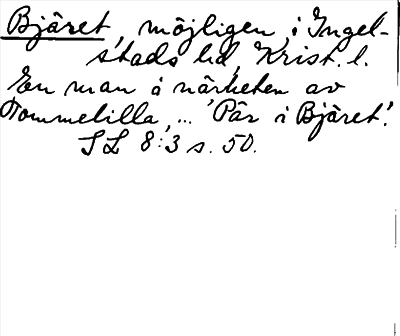 Bjäret, möjligen i Ingel-
stads hd, Krist. l.
En man å närheten av
Tommelilla, ... 'Pär i Bjäret'.
SL 8:3 s. 50.